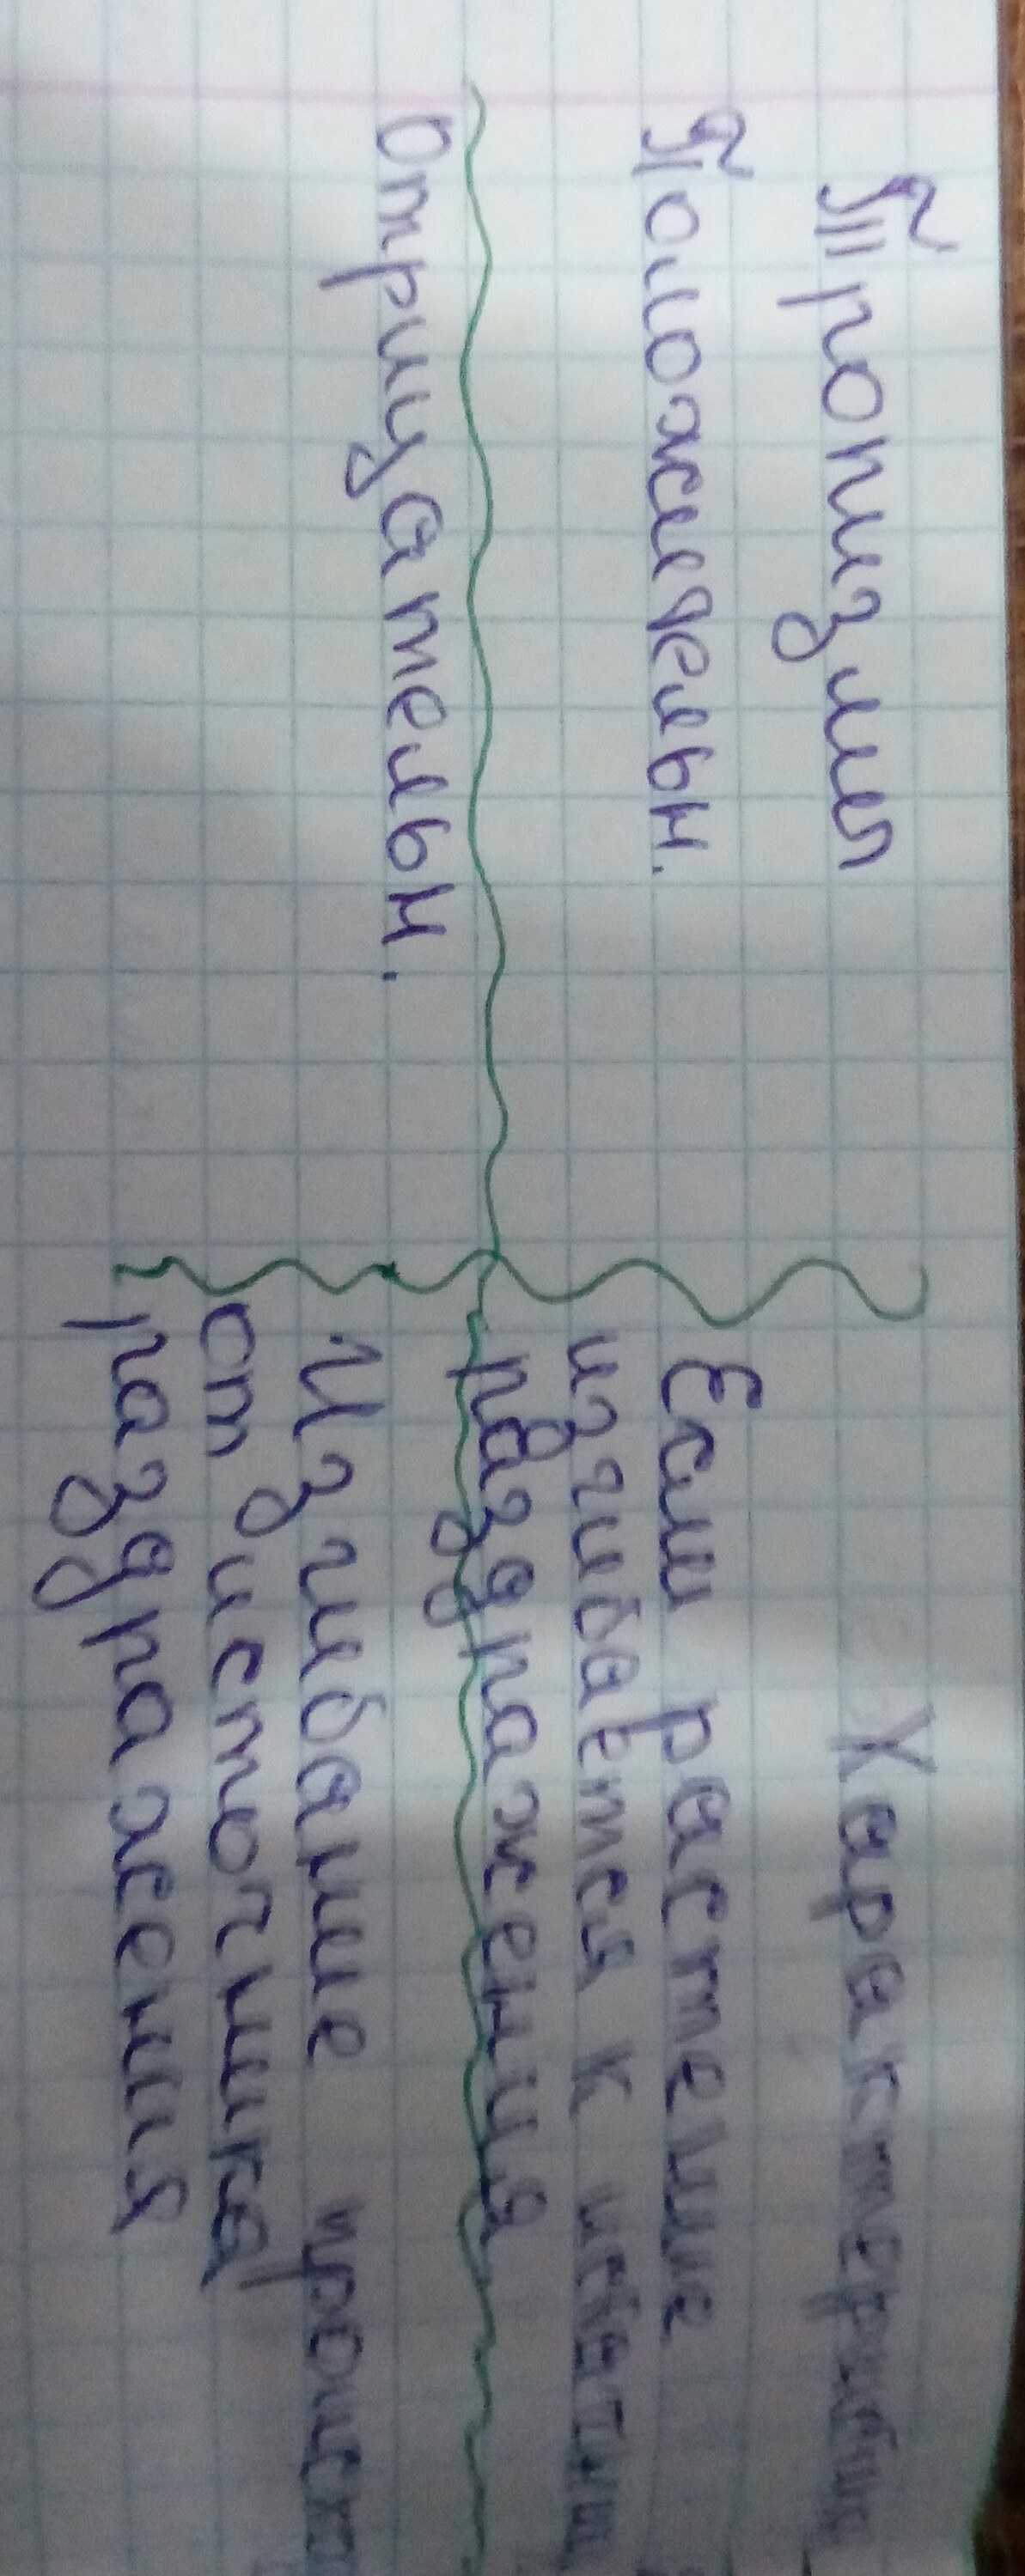 Тропизмы Характеристи
Положителн.
Если растение
изгибается к
раздражения
Отрицательн.
Изгибание происх
от источника
раздражения